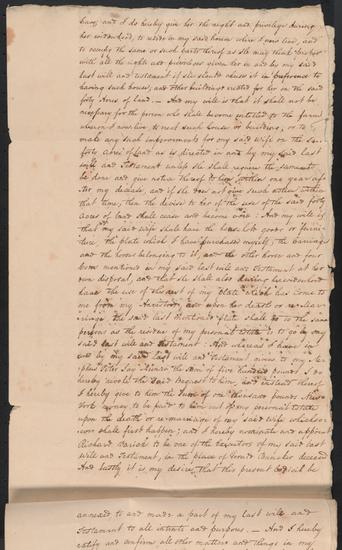 have, and I do hereby give her the right and privilege during
her widowhood, to reside in my said house where I now live, and
to occupy the same or such parts thereof as she may think proper
with all the rights and privileges given her in and by my said
last will and testament if she should choose it in preference to
having such house, and other buildings erected for her on the said
forty Acres of land. — And my will is that it shall not be
necessary for the person who shall become entitled to the farm
whereon I now live to erect such house or building, or to
make any such improvements for my said wife on the said
forty Acres of land as is directed in and by my said last
will and Testament unless she shall require the same to
be done and give notice thereof to him within one year af-
ter my decease, and if she does not give such notice within
that time, then the devise to her of the use of the said forty
Acres of land shall cease and become void: And my will is
that my said wife shall have the household goods or furni-
ture, the plate which I have purchased myself, the carriage
and the horses belonging to it, and the other horses and four
Cows mentioned in my said last will and testament at her
own disposal, and that she shall also during her widowhood
have the use of the rest of my plate which has come to
me from my Ancestors, and upon her death or remar-
riage the said last mentioned plate shall go to the same
persons as the residue of my personal estate is to go by my
said last will and testament: And whereas I have in
and by my said last will and Testament given to my Ne-
phew Peter Jay Munro the sum of five hundred pounds I do
hereby revoke the said bequest to him, and instead thereof
I hereby give to him the sum of one thousand pounds New
York money to be paid to him out of my personal estate
upon the death or remarriage of my said wife which so-
ever shall first happen; and I hereby nominate and appoint
Richard Varick to be one of the executors of my said last
Will and Testament, in the place of deceased
And lastly it is my desire, that this present Codicil be
annexed to and made a part of my last will and
Testament to all intents and purposes. — And I hereby
ratify and confirm all other matters and things in my